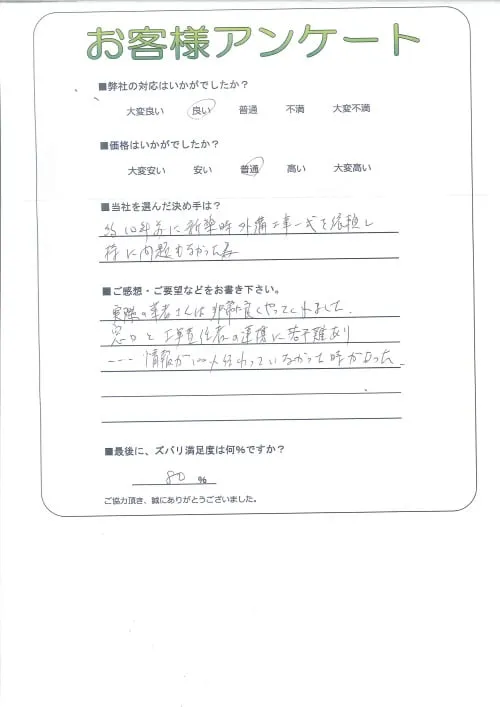 お客様アンケート
■弊社の対応はいかがでしたか？
大変良い 良い 普通 不満 大変不満
■価格はいかがでしたか？
大変安い 安い 普通 高い 大変高い
■当社を選んだ決め手は？
約10年前に新築時外構工事一式を依頼し
特に問題もなかった為
■ご感想・ご要望などをお書き下さい。
実際の業者さんは非常に良くやってくれました。
窓口と工事責任者の連携に若干難あり
---- 情報が100%伝わっていなかった時があった。
■最後に、ズバリ満足度は何％ですか？
80 ％
ご協力頂き、誠にありがとうございました。